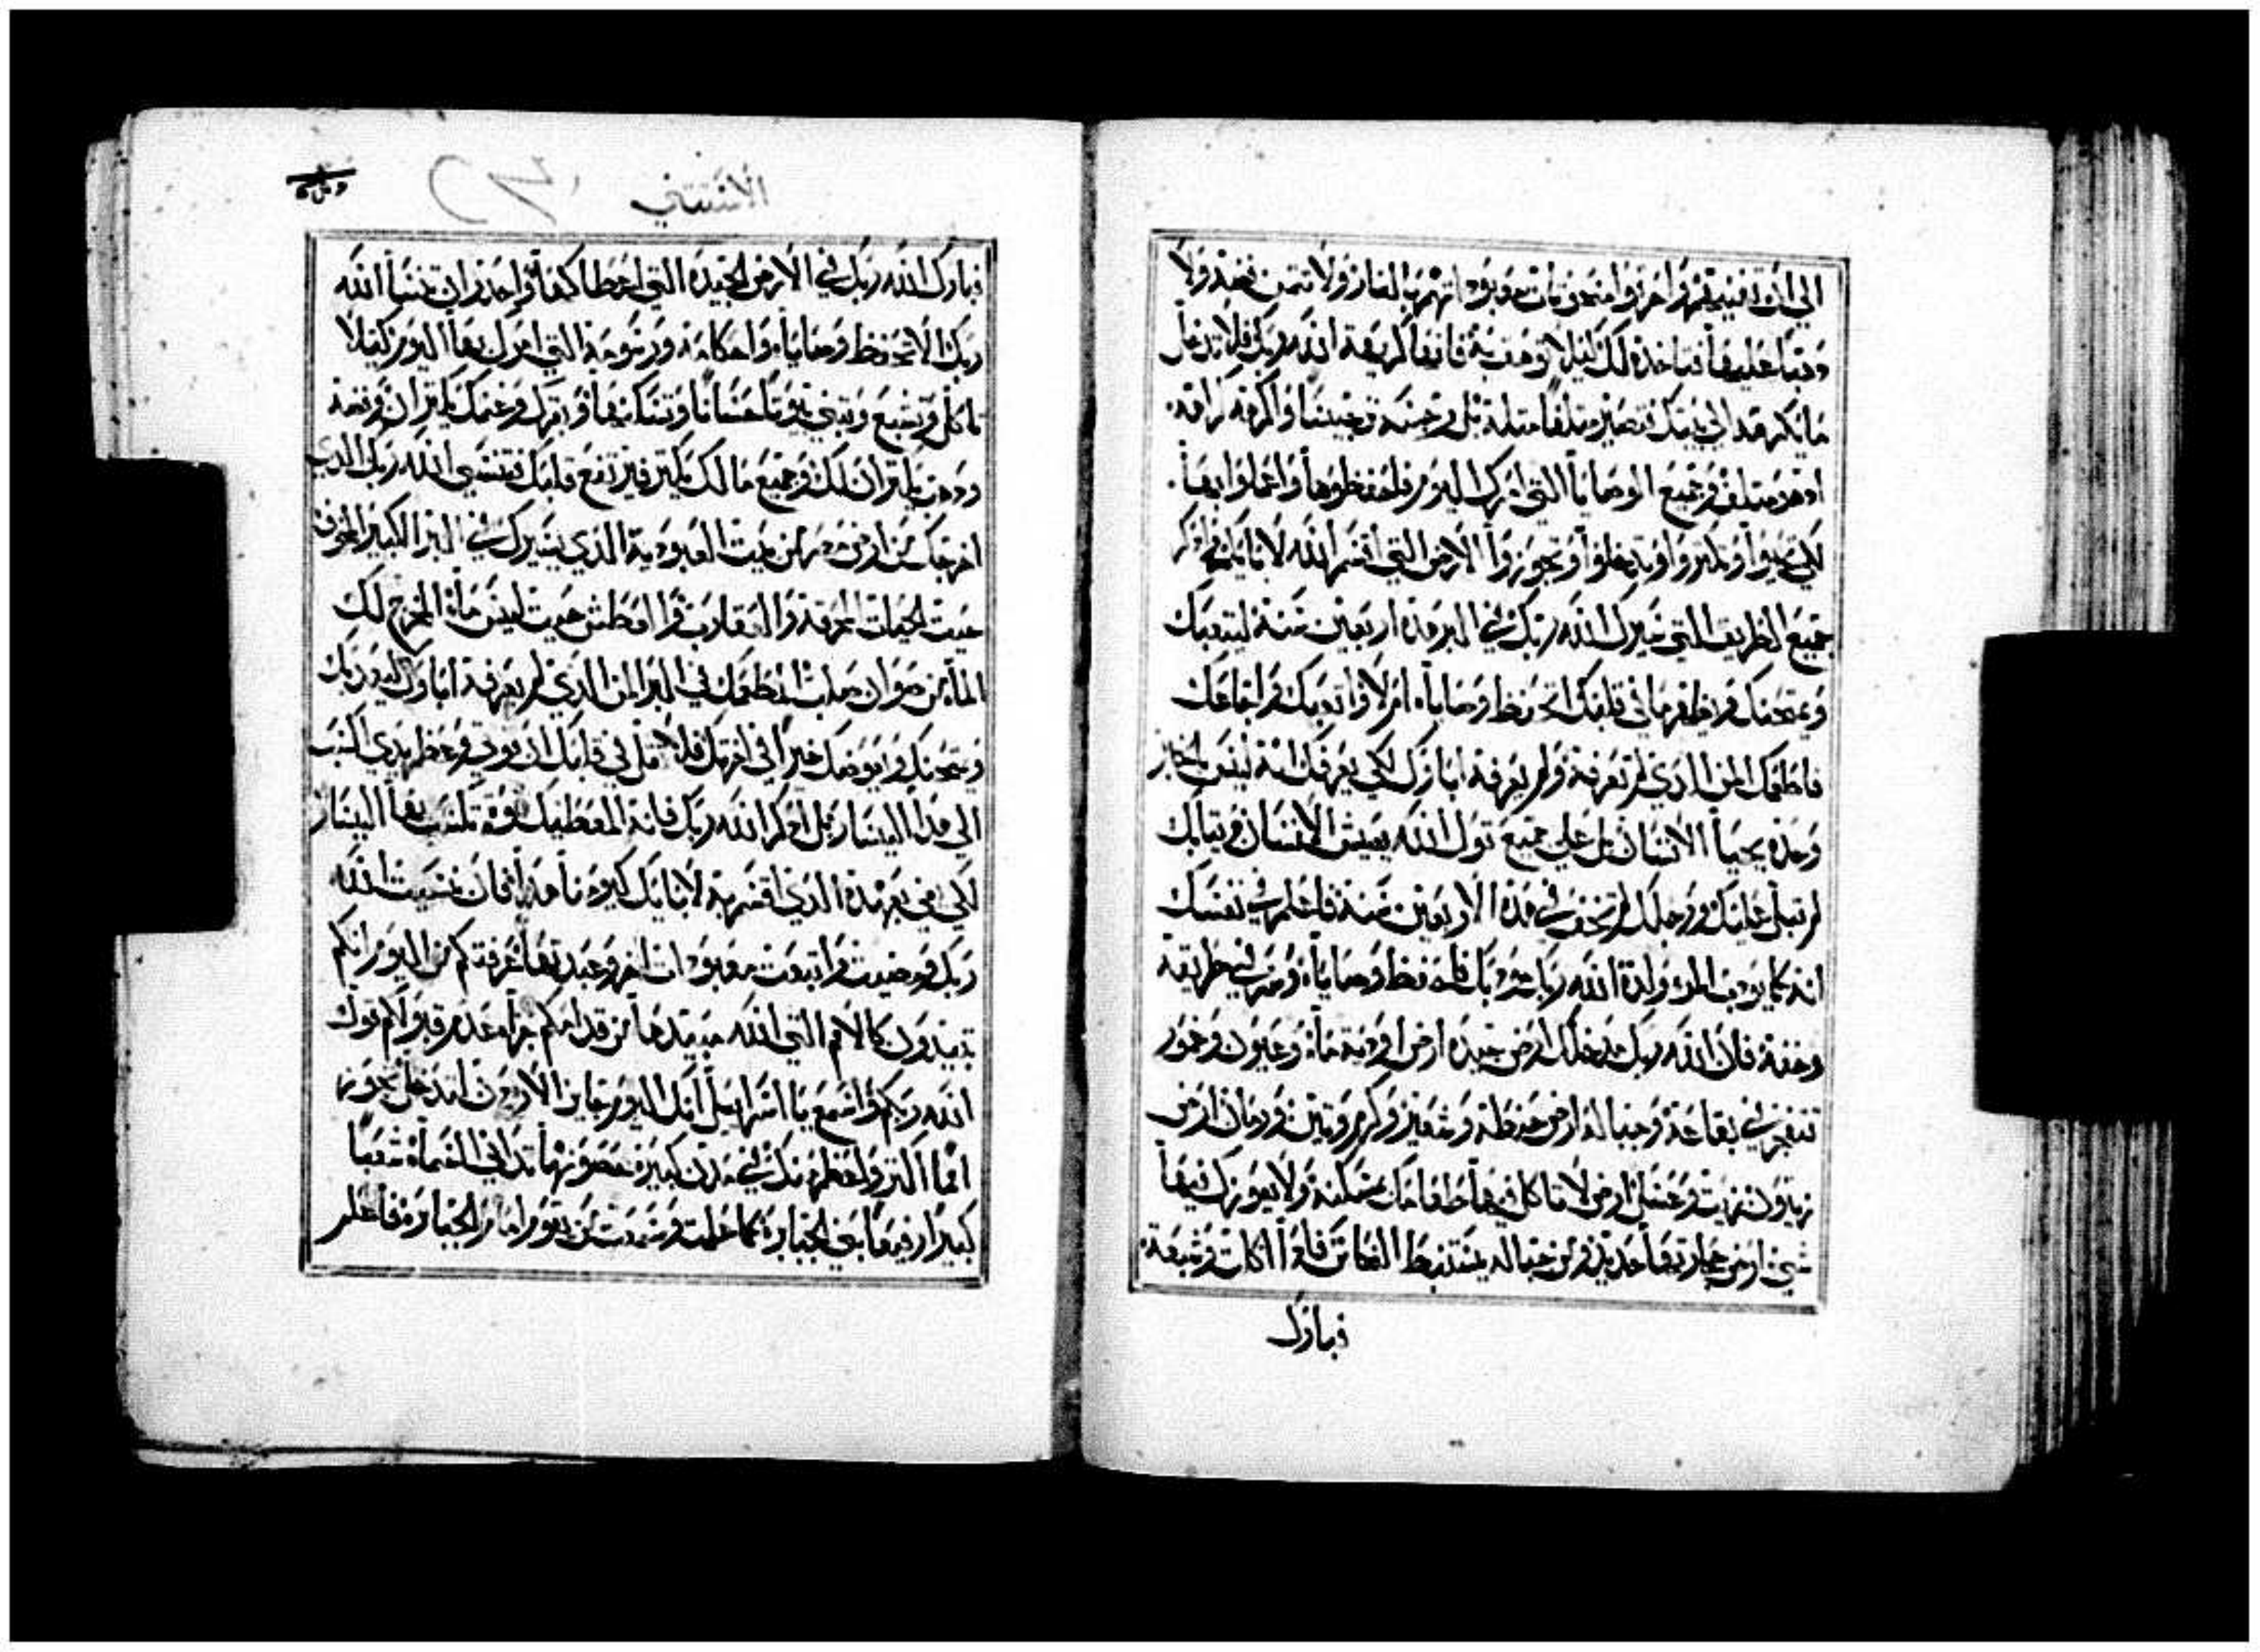 الي ان تفنيهم واحرقوا منحوتات معبوداتهم بالنار ولا تتمن فضة ولا
دهبا عليها فتاخده لك ليلا توهق به فانها كريهة الله ربك فلا تدخل
ما يكرهه الي بيتك فتصير متلفا متله بل رجسه ترجيسا واكرهه كراهه
اد هو متلف وجميع الوصايا التي امرك اليوم فاحفظوها واعملوا بها
لكي تحيوا وتكتروا وتدخلوا وتحوزوا الارض التي اقسم الله لابايكم وادكر
جميع الطريق التي سيرك الله ربك في البر هده اربعين سنة ليتعبك
ويمتحنك ويظهر ما في قلبك اتحفظ وصاياه ام لا واتعبك واجاعك
فاطعمك المن الدي لم تعرفه ولم يعرفه اباوك لكي يعرفك انه ليس بالخبز
وحده يحيا الانسان بل علي جميع قول الله يعيش الانسان وتيابك
لم تبل عليك ورجلك لم تحف في هده الاربعين سنة فاعلم في نفسك
انه كما يودب المرء ولده الله ربك مودبك فاحفظ وصاياه وسر في طريقه
وخفه فان الله ربك مدخلك ارض جيده ارض اودية ماء وعيون وغمور
تنفجر في بقاعه وجباله ارض حنطة وشعير وكرم وتين ورمان ارض
زيتون زيت وعسل ارض لا تاكل فيها طعامك بمسكنة ولا يعوزك فيها
شي ارض حجارتها حديد ومن جباله يستنبط النحاس فادا اكلت وشبعت
فبارك
الاستتني
فبارك الله ربك في الارض الجيده التي اعطاكها واحدر ان تنسا الله
ربك الا تحفظ وصاياه واحكامه ورسومه التي امرك بها اليوم كيلا
تاكل وتشبع وتبني بيوتا حسانا وتسكنها وبقرك وغنمك يكتران وفضة
ودهب يكتران لك وجميع ما لك يكتر فيرتفع قلبك فتنسي الله ربك الدي
اخرجك من ارض مصر من بيت العبودية الدي سيرك في البر الكبير المخوف
حيت الحيات المحرقة والعقارب والعطش حيت ليس ماء المخرج لك
الماء من صوان صلب المطعمك في البر المن الدي لم يعرفه اباوك ليعدبك
ويمتحنك ويعوضك خيرا في اخرتك فلا تقل في قلبك ان قوتي وعظم يدي اكسب
الي هدا اليسار بل ادكر الله ربك فانه المعطيك قوة تكسب بها اليسار
لكي يفي بعهده الدي اقسم به لابايك كيومنا هدا فان نسيت الله
ربك ومضيت واتبعت معبودات اخر وعبدتها عرفتكم من اليوم انكم
تبيدون كالامم التي الله مبيدها من قدامكم جزاء عدم قبولكم قول
الله ربكم واسمع يا اسراييل انك اليوم جايز الاردن لتدخل تحوز
امما اكتر واعظم منك في مدن كبيره حصونها تداني السماء شعبا
كبيرا رفيعا بني الجبابرة كما علمت وسمعت من يقوم امام الجبابرة فاعلم